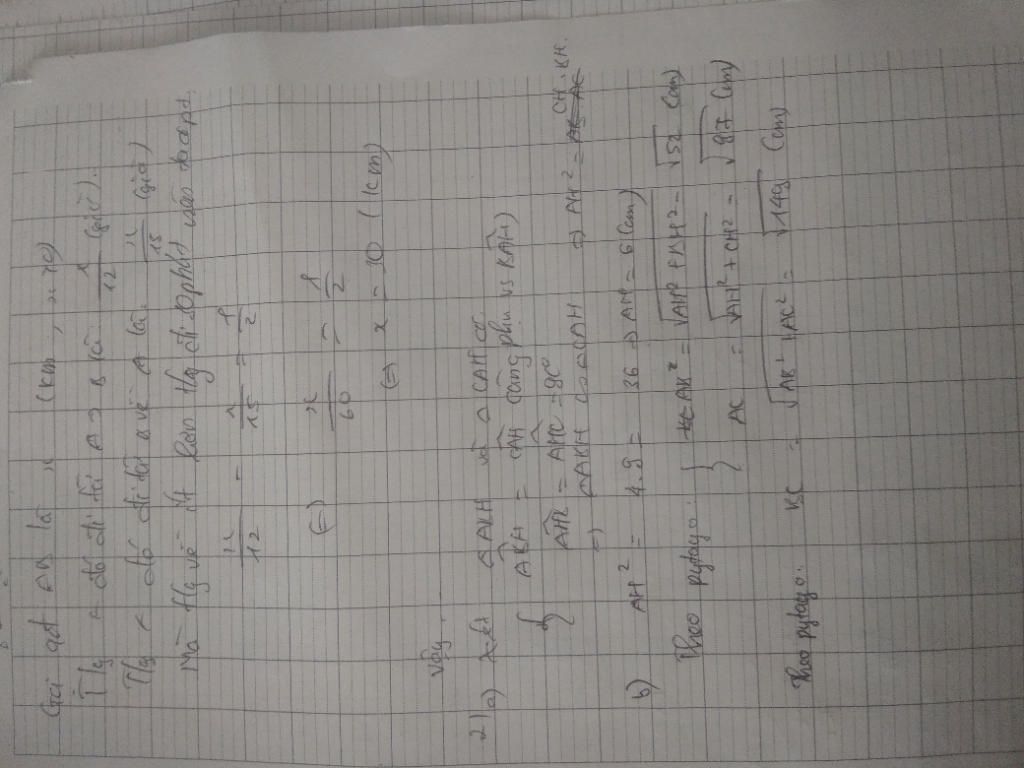 Gọi qđt AB là x (km, x>0)
Thg ô tô đi từ A → B là x/12 (giờ).
Thg ô tô đi từ B về A là x/15 (giờ)
Mà thg về ít hơn thg đi 30 phút nên ta có pt
x/12 - x/15 = 1/2
(=) x/60 = 1/2
(=) x = 30 (km)
Vậy.
2) a) Xét ΔAKH và ΔCAH có
{ AKH = CAH (cùng phụ vs KAH)
AHK = AHC = 90°
=> ΔAKH ∽ ΔCAH => AH² = CH.KH.
b) AH² = 4.9 = 36 => AH = 6 (cm)
Theo pytago. { AK = √AH²+KH² = √52 (cm)
AC = √AH²+CH² = √117 (cm)
Theo pytago. KC = √AK²+AC² = √169 (cm)